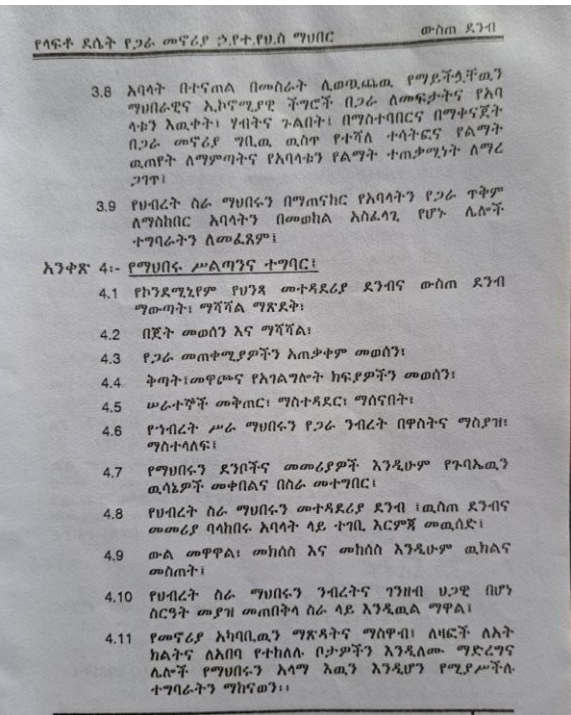 የላፍቶ ደሴት የጋራ መኖሪያ ኃ.የተ.የህ.ስ ማህበር ውስጠ ደንብ
3.8 አባላት በተናጠል በመስራት ሊወጧጨዉ የማይችሏቸዉን
ማህበራዊና ኢኮኖሚያዊ ችግሮች በጋራ ለመፍታትና የአባ
ላቱን እዉቀት፣ ሃብትና ጉልበት፣ በማስተባበርና በማቀናጀት
በጋራ መኖሪያ ግቢዉ ዉስጥ የተሻለ ተሳትፎና የልማት
ዉጠየት ለማምጣትና የአባላቱን የልማት ተጠቃሚነት ለማረ
ጋገጥ፣
3.9 የህብረት ስራ ማህበሩን በማጠናከር የአባላትን የጋራ ጥቅም
ለማስከበር አባላትን በመወከል አስፈላጊ የሆኑ ሌሎች
ተግባራትን ለመፈጸም፤
አንቀጽ 4፡- የማህበሩ ሥልጣንና ተግባር፤
4.1 የኮንደሚኒየም የህንጻ መተዳደሪያ ደንብና ውስጠ ደንብ
ማውጣት፣ ማሻሻል ማጽደቅ፣
4.2 በጀት መወሰን እና ማሻሻል፣
4.3 የጋራ መጠቀሚያዎችን አጠቃቀም መወሰን፣
4.4 ቅጣት፣መዋጮና የአገልግሎት ክፍያዎችን መወሰን፣
4.5 ሠራተኞች መቅጠር፣ ማስተዳደር፣ ማሰናበት፣
4.6 የኅብረት ሥራ ማህበሩን የጋራ ንብረት በዋስትና ማስያዝ፣
ማስተላለፍ፤
4.7 የማህበሩን ደንቦችና መመሪያዎች እንዲሁም የጉባኤዉን
ዉሳኔዎች መቀበልና በስራ መተግበር፤
4.8 የህብረት ስራ ማህበሩን መተዳደሪያ ደንብ ፤ዉስጠ ደንብና
መመሪያ ባላከበሩ አባላት ላይ ተገቢ እርምጃ መዉሰድ፤
4.9 ውል መዋዋል፣ መክሰስ እና መከሰስ እንዲሁም ዉክልና
መስጠት፤
4.10 የህብረት ስራ ማህበሩን ንብረትና ገንዘብ ህጋዊ በሆነ
ስርዓት መያዝ መጠበቅላ ስራ ላይ እንዲዉል ማዋል፤
4.11 የመኖሪያ አካባቢዉን ማጽዳትና ማስዋብ፣ ለዛፎች ለአት
ክልትና ለአበባ የተከለሉ ቦታዎችን እንዲለሙ ማድረግና
ሌሎች የማህበሩን አላማ እዉን እንዲሆን የሚያሥችሉ
ተግባራትን ማከናወን።